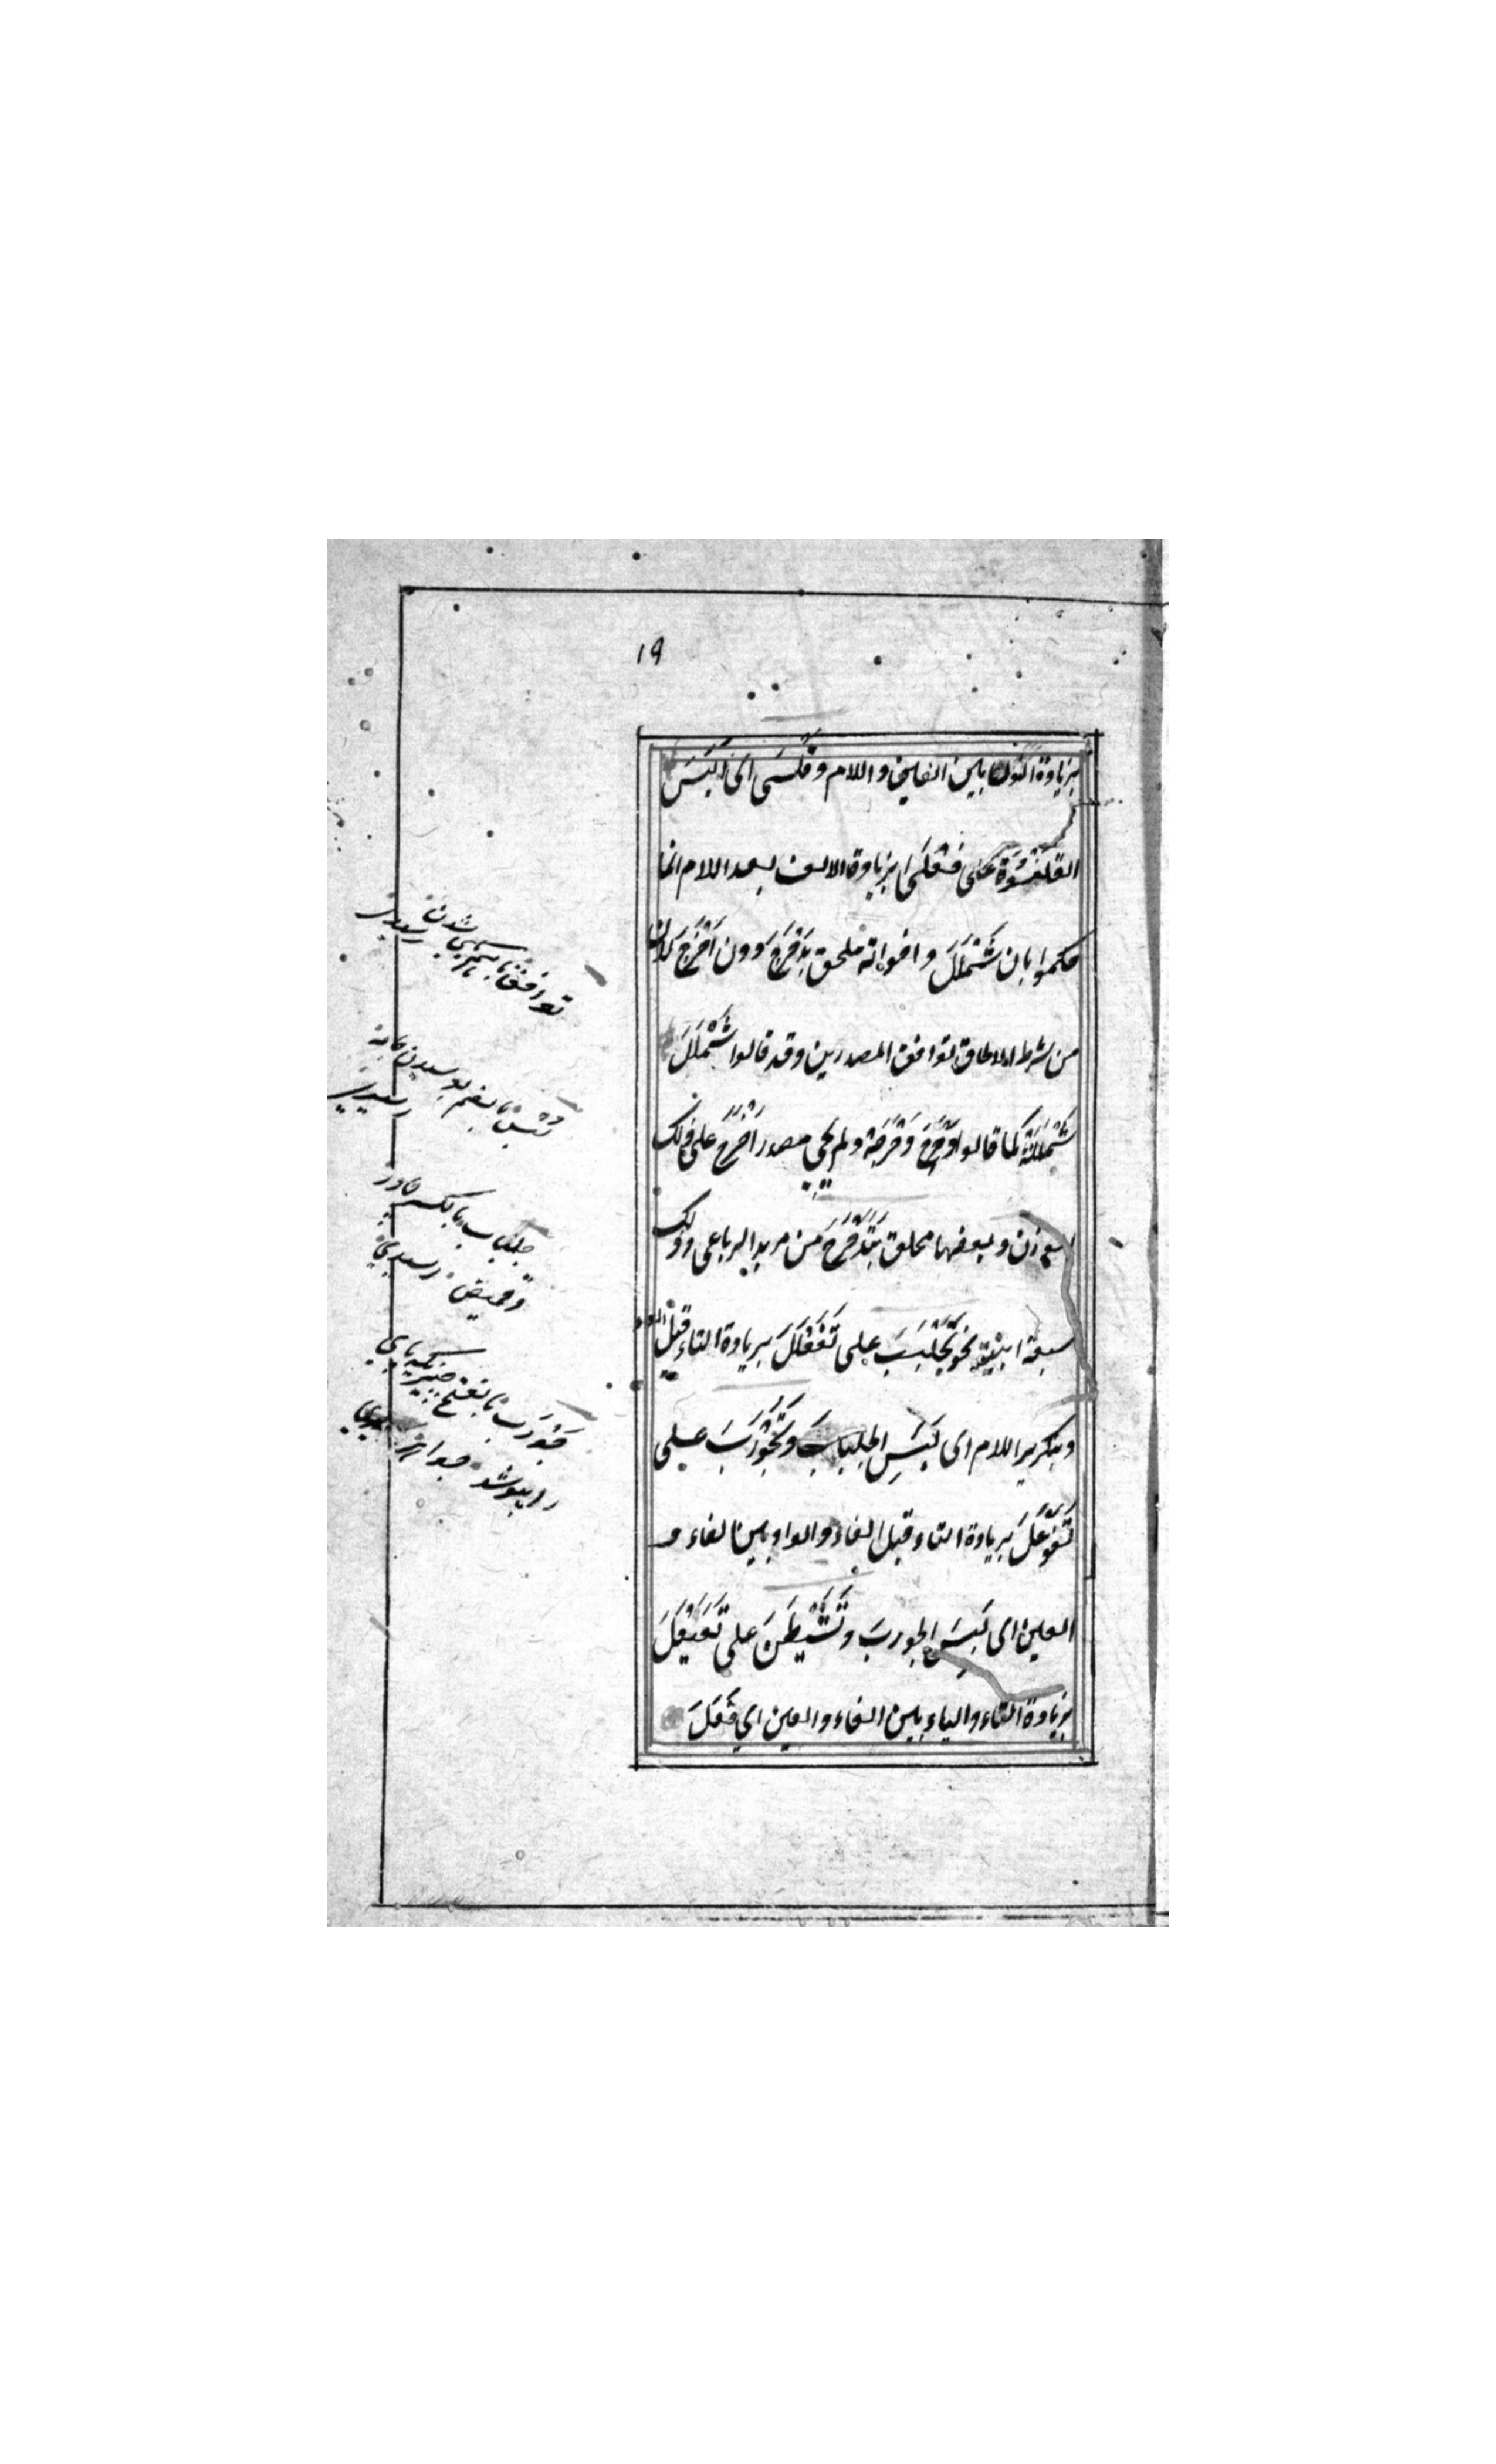 ١٩
بزيادة النون بين العين واللام وقلسى اى البس
القلنسوة على فعلى بزيادة الالف بعد اللام انما
حكموا بان شَمْلَلَ واخواته ملحق بدحرج دون اخرج لان
من شرط الالحاق توافق المصدرين وقد قالوا شَمْلَلَ
شَمْلَلَةً كما قالوا دحرج دحرجة ولم يجئ مصدر اخرج على ذلك
الوزن وبعضها ملحق بتدحرج من مزيد الرباعى وذلك
سبعة ابنية نحو تجلبب على تَفَعْلَلَ بزيادة التاء قبل الفاء
وبتكرير اللام اى لَبِسَ الجلباب وتَجَوْرَبَ على
تَفَوْعَلَ بزيادة التاء قبل الفاء والواو بين الفاء و
العين اى لَبِسَ الجورب وتَشَيْطَنَ على تَفَيْعَلَ
بزيادة التاء والياء بين الفاء والعين اي فَعَلَ
توافق با
شدن
بالضم پوسیدن
جلباب بالكسر چادر
وقميص
جَوْرَب بالفتح چيزيكه پاي
را بپوشد